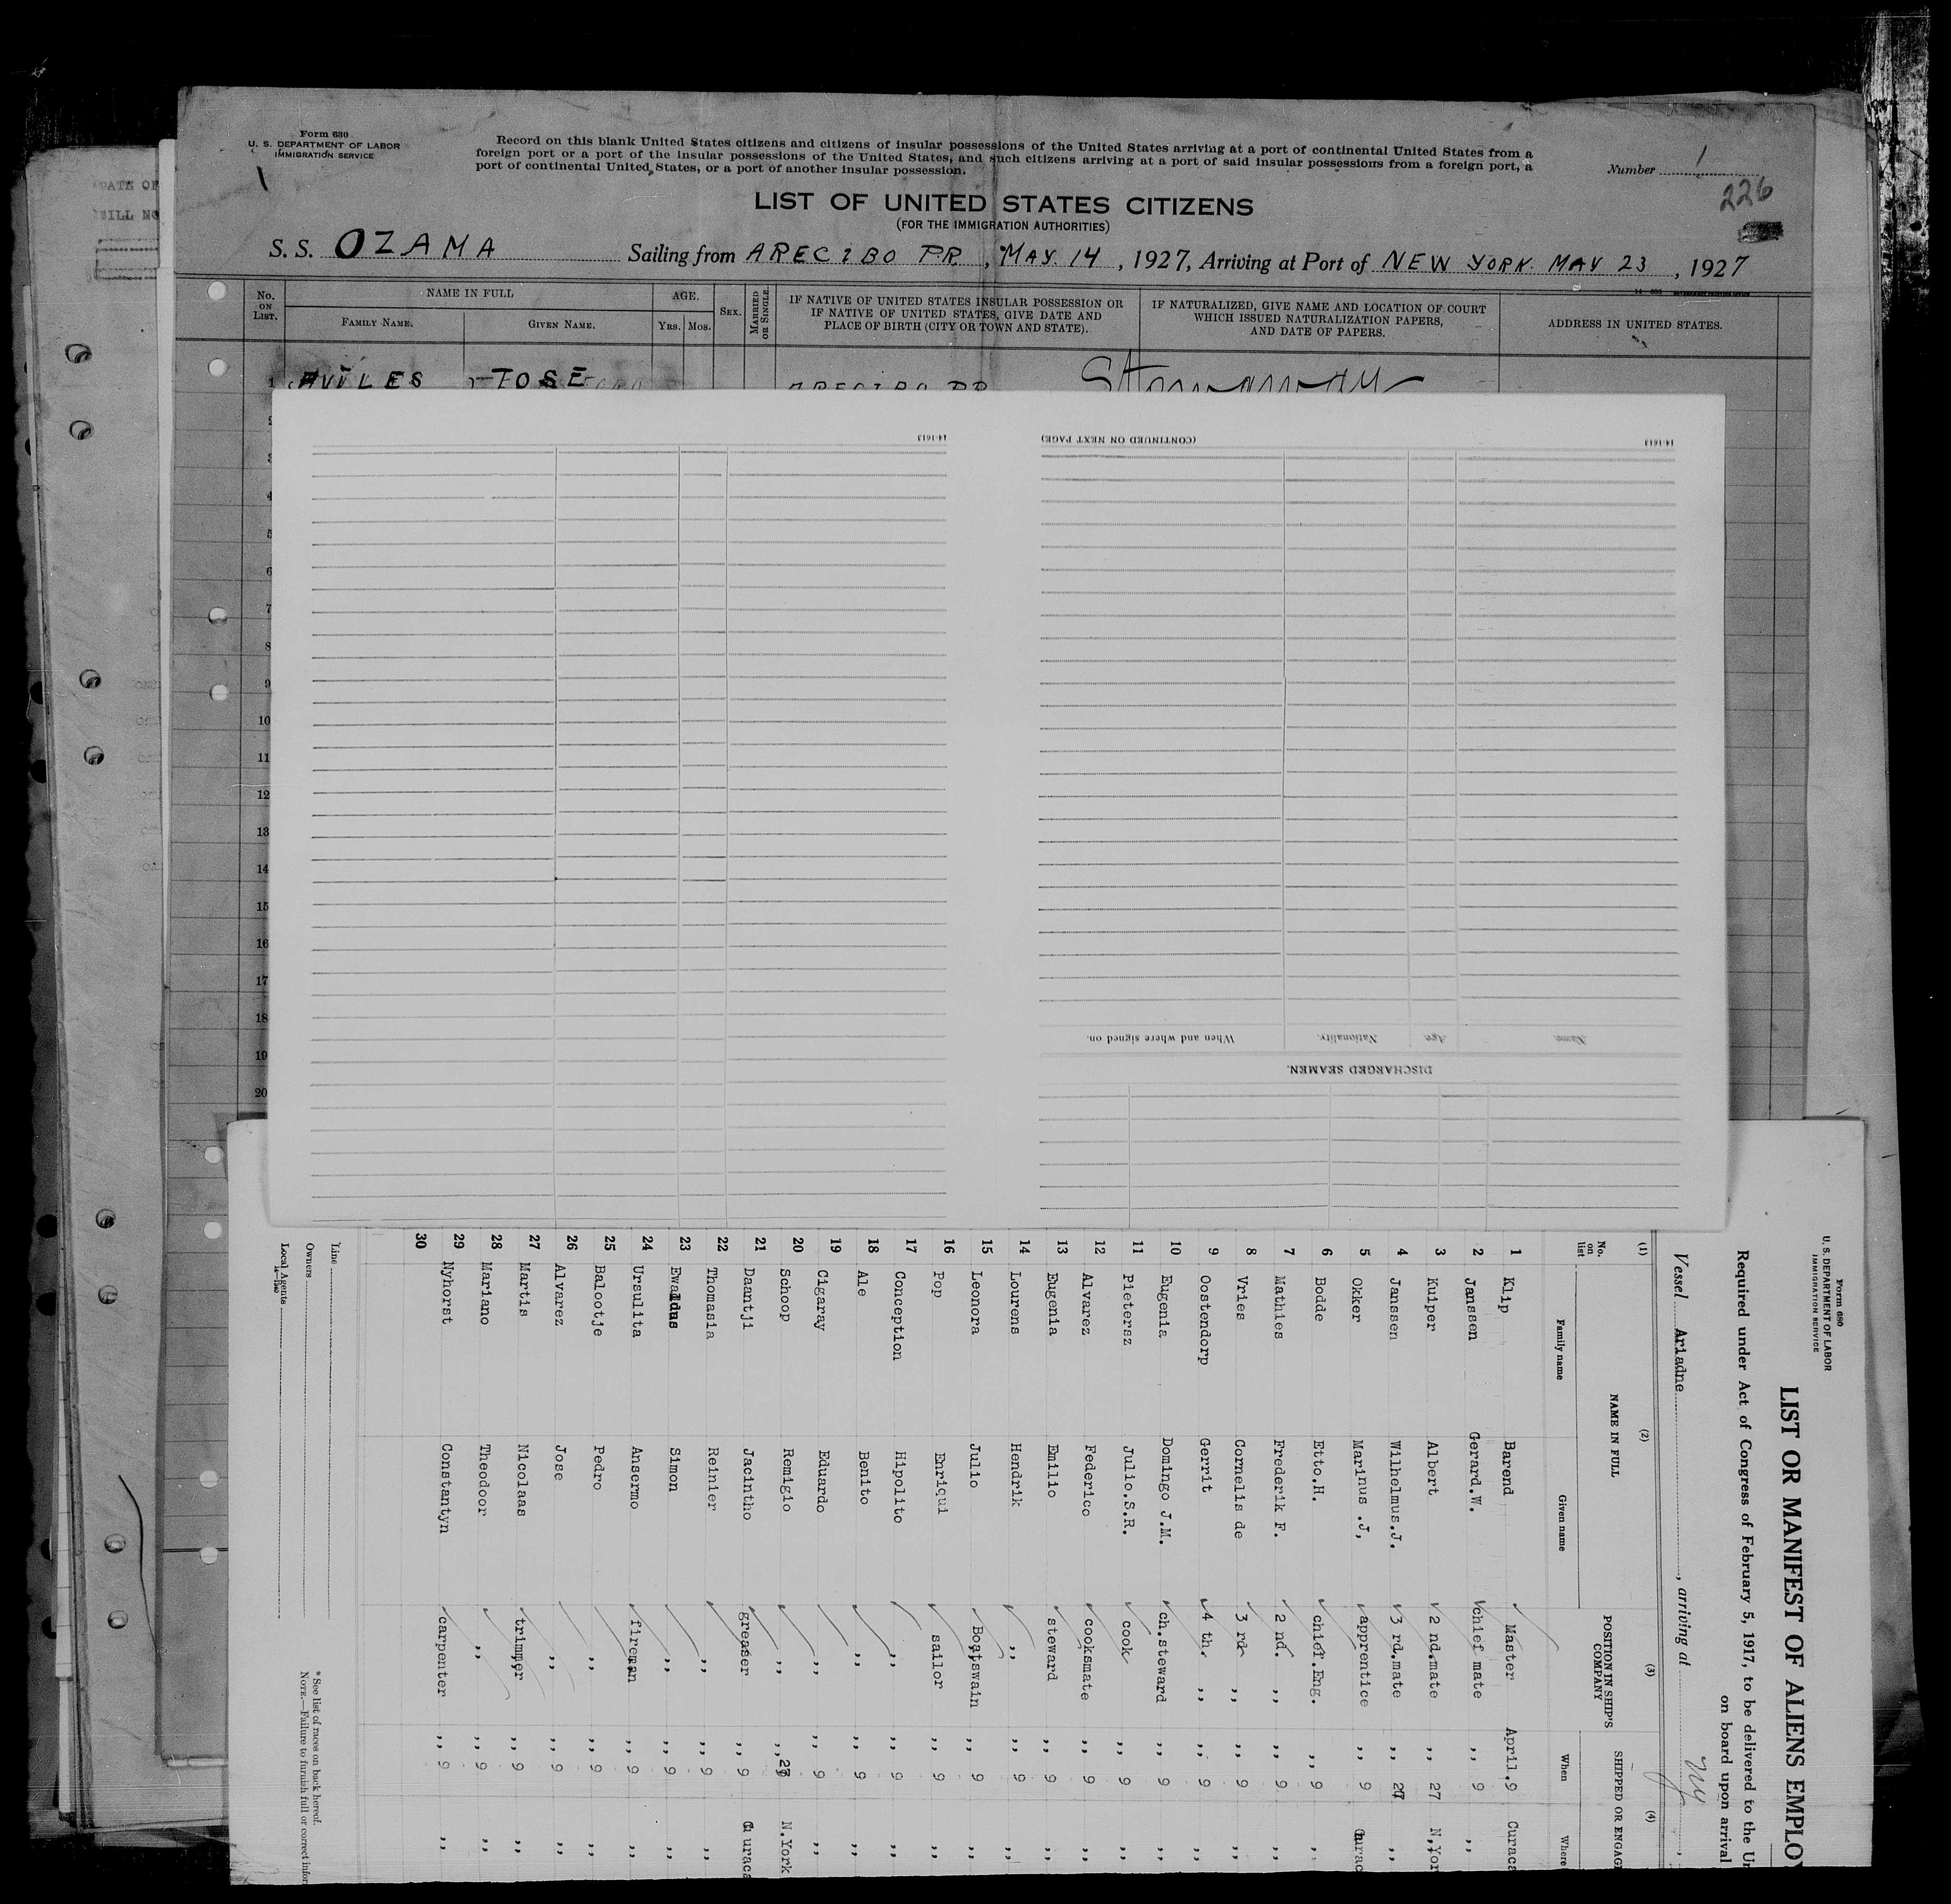 Form 630
U. S. DEPARTMENT OF LABOR
IMMIGRATION SERVICE
Record on this blank United States citizens and citizens of insular possessions of the United States arriving at a port of continental United States from a
foreign port or a port of the insular possessions of the United States, and such citizens arriving at a port of said insular possessions from a foreign port, a
port of continental United States, or a port of another insular possession.
Number 1
226
LIST OF UNITED STATES CITIZENS
(FOR THE IMMIGRATION AUTHORITIES)
S. S. OZAMA Sailing from ARECIBO P.R., MAY. 14, 1927, Arriving at Port of NEW YORK. MAY 23, 1927
No. ON LIST.
NAME IN FULL
FAMILY NAME.
GIVEN NAME.
AGE.
Yrs. Mos.
SEX.
MARRIED OR SINGLE.
IF NATIVE OF UNITED STATES INSULAR POSSESSION OR
IF NATIVE OF UNITED STATES, GIVE DATE AND
PLACE OF BIRTH (CITY OR TOWN AND STATE).
IF NATURALIZED, GIVE NAME AND LOCATION OF COURT
WHICH ISSUED NATURALIZATION PAPERS,
AND DATE OF PAPERS.
ADDRESS IN UNITED STATES.
1 AVILES JOSE ARECIBO PR Stowaway
2
3
4
5
6
7
8
9
10
11
12
13
14
15
16
17
18
19
20
14-1613
(CONTINUED ON NEXT PAGE)
14-1613
When and where signed on.
Nationality.
Age.
Name.
DISCHARGED SEAMEN.
Form 680
U. S. DEPARTMENT OF LABOR
IMMIGRATION SERVICE
LIST OR MANIFEST OF ALIENS EMPLOY
Required under Act of Congress of February 5, 1917, to be delivered to the Un
on board upon arrival
Vessel Ariadne, arriving at NY
(1) (2) (3) (4)
No. on list
NAME IN FULL
Family name
Given name
POSITION IN SHIP'S COMPANY
SHIPPED OR ENGAG
When
Where
1 Klip Barend Master April.9 Curaca
2 Janssen Gerard.W. chief mate ,, 9 ,,
3 Kuiper Albert 2 nd.mate ,, 27 N.Yor
4 Janssen Wilhelmus.J. 3 rd.mate ,, 27 ,,
5 Okker Marinus .J, apprentice ,, 9 Curac
6 Bodde Etto.H. chief.Eng. ,, 9 ,,
7 Mathies Frederik F. 2 nd. ,, ,, 9 ,,
8 Vries Cornelis de 3 rd ,, ,, 9 ,,
9 Oostendorp Gerrit 4 th. ,, ,, 9 ,,
10 Eugenia Domingo J.M. ch.steward ,, 9 ,,
11 Pietersz Julio.S.R. cook ,, 9 ,,
12 Alvarez Federico cooksmate ,, 9 ,,
13 Eugenia Emilio steward ,, 9 ,,
14 Lourens Hendrik ,, ,, 9 ,,
15 Leonora Julio Boatswain ,, 9 ,,
16 Pop Enriqui sailor ,, 9 ,,
17 Conception Hipolito ,, ,, 9 ,,
18 Ale Benito ,, ,, 9 ,,
19 Cigaray Eduardo ,, ,, 9 ,,
20 Schoop Remigio ,, ,, 27 N.York
21 Daantji Jacintho greaser ,, 9 Curaca
22 Thomasia Reinier ,, ,, 9 ,,
23 Ewaldus Simon ,, ,, 9 ,,
24 Ursulita Ansermo fireman ,, 9 ,,
25 Balootje Pedro ,, ,, 9 ,,
26 Alvarez Jose ,, ,, 9 ,,
27 Martis Nicolaas trimmer ,, 9 ,,
28 Mariano Theodoor ,, ,, 9 ,,
29 Nyhorst Constantyn carpenter ,, 9 ,,
30
Line
Owners
Local Agents
* See list of races on back hereof.
NOTE.—Failure to furnish full or correct infor